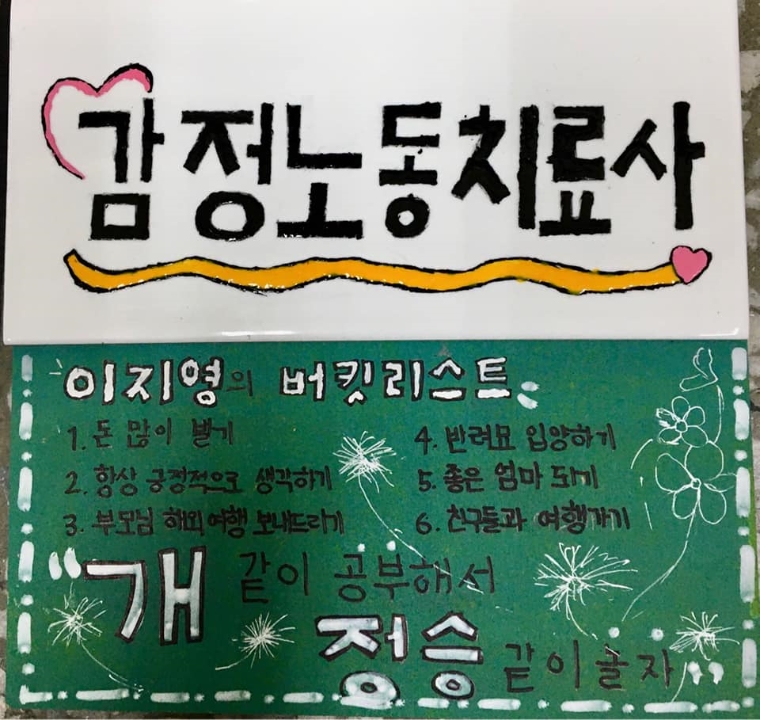 감정노동치료사
이지영의 버킷리스트
1. 돈 많이 벌기
2. 항상 긍정적으로 생각하기
3. 부모님 해외여행 보내드리기
4. 반려묘 입양하기
5. 좋은 엄마 되기
6. 친구들과 여행가기
"개 같이 공부해서
정승 같이 놀자"